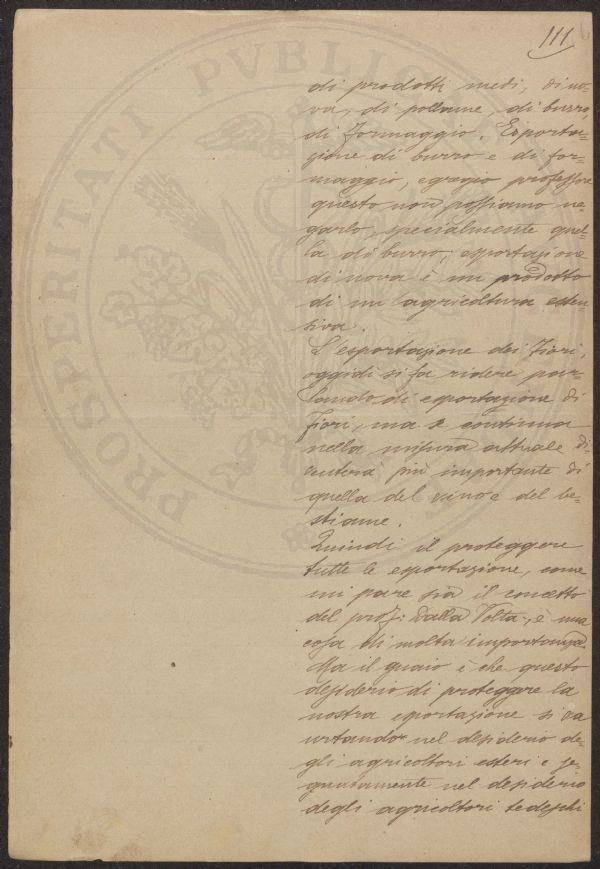 111
PROSPERITATI PVBLICAE
di prodotti medi, di uo-
va, di pollame, di burro,
di formaggio. Esporta-
zione di burro e di for-
maggio, egregio professore
questo non possiamo ne-
garlo, specialmente quel-
la di burro; esportazione
di uova è un prodotto
di un agricoltura esten-
siva.
L'esportazione dei fiori,
oggidì si fa ridere par-
lando di esportazione di
fiori, ma se continua
nella misura attuale di-
venterà più importante di
quella del vino e del be-
stiame.
Quindi il proteggere
tutte le esportazione, come
mi pare sia il concetto
del prof: Dalla Volta, è una
cosa di molta importanza.
Ma il guaio è che questo
desiderio di proteggere la
nostra esportazione si va
urtando nel desiderio de-
gli agricoltori esteri e se-
gnatamente nel desiderio
degli agricoltori tedeschi